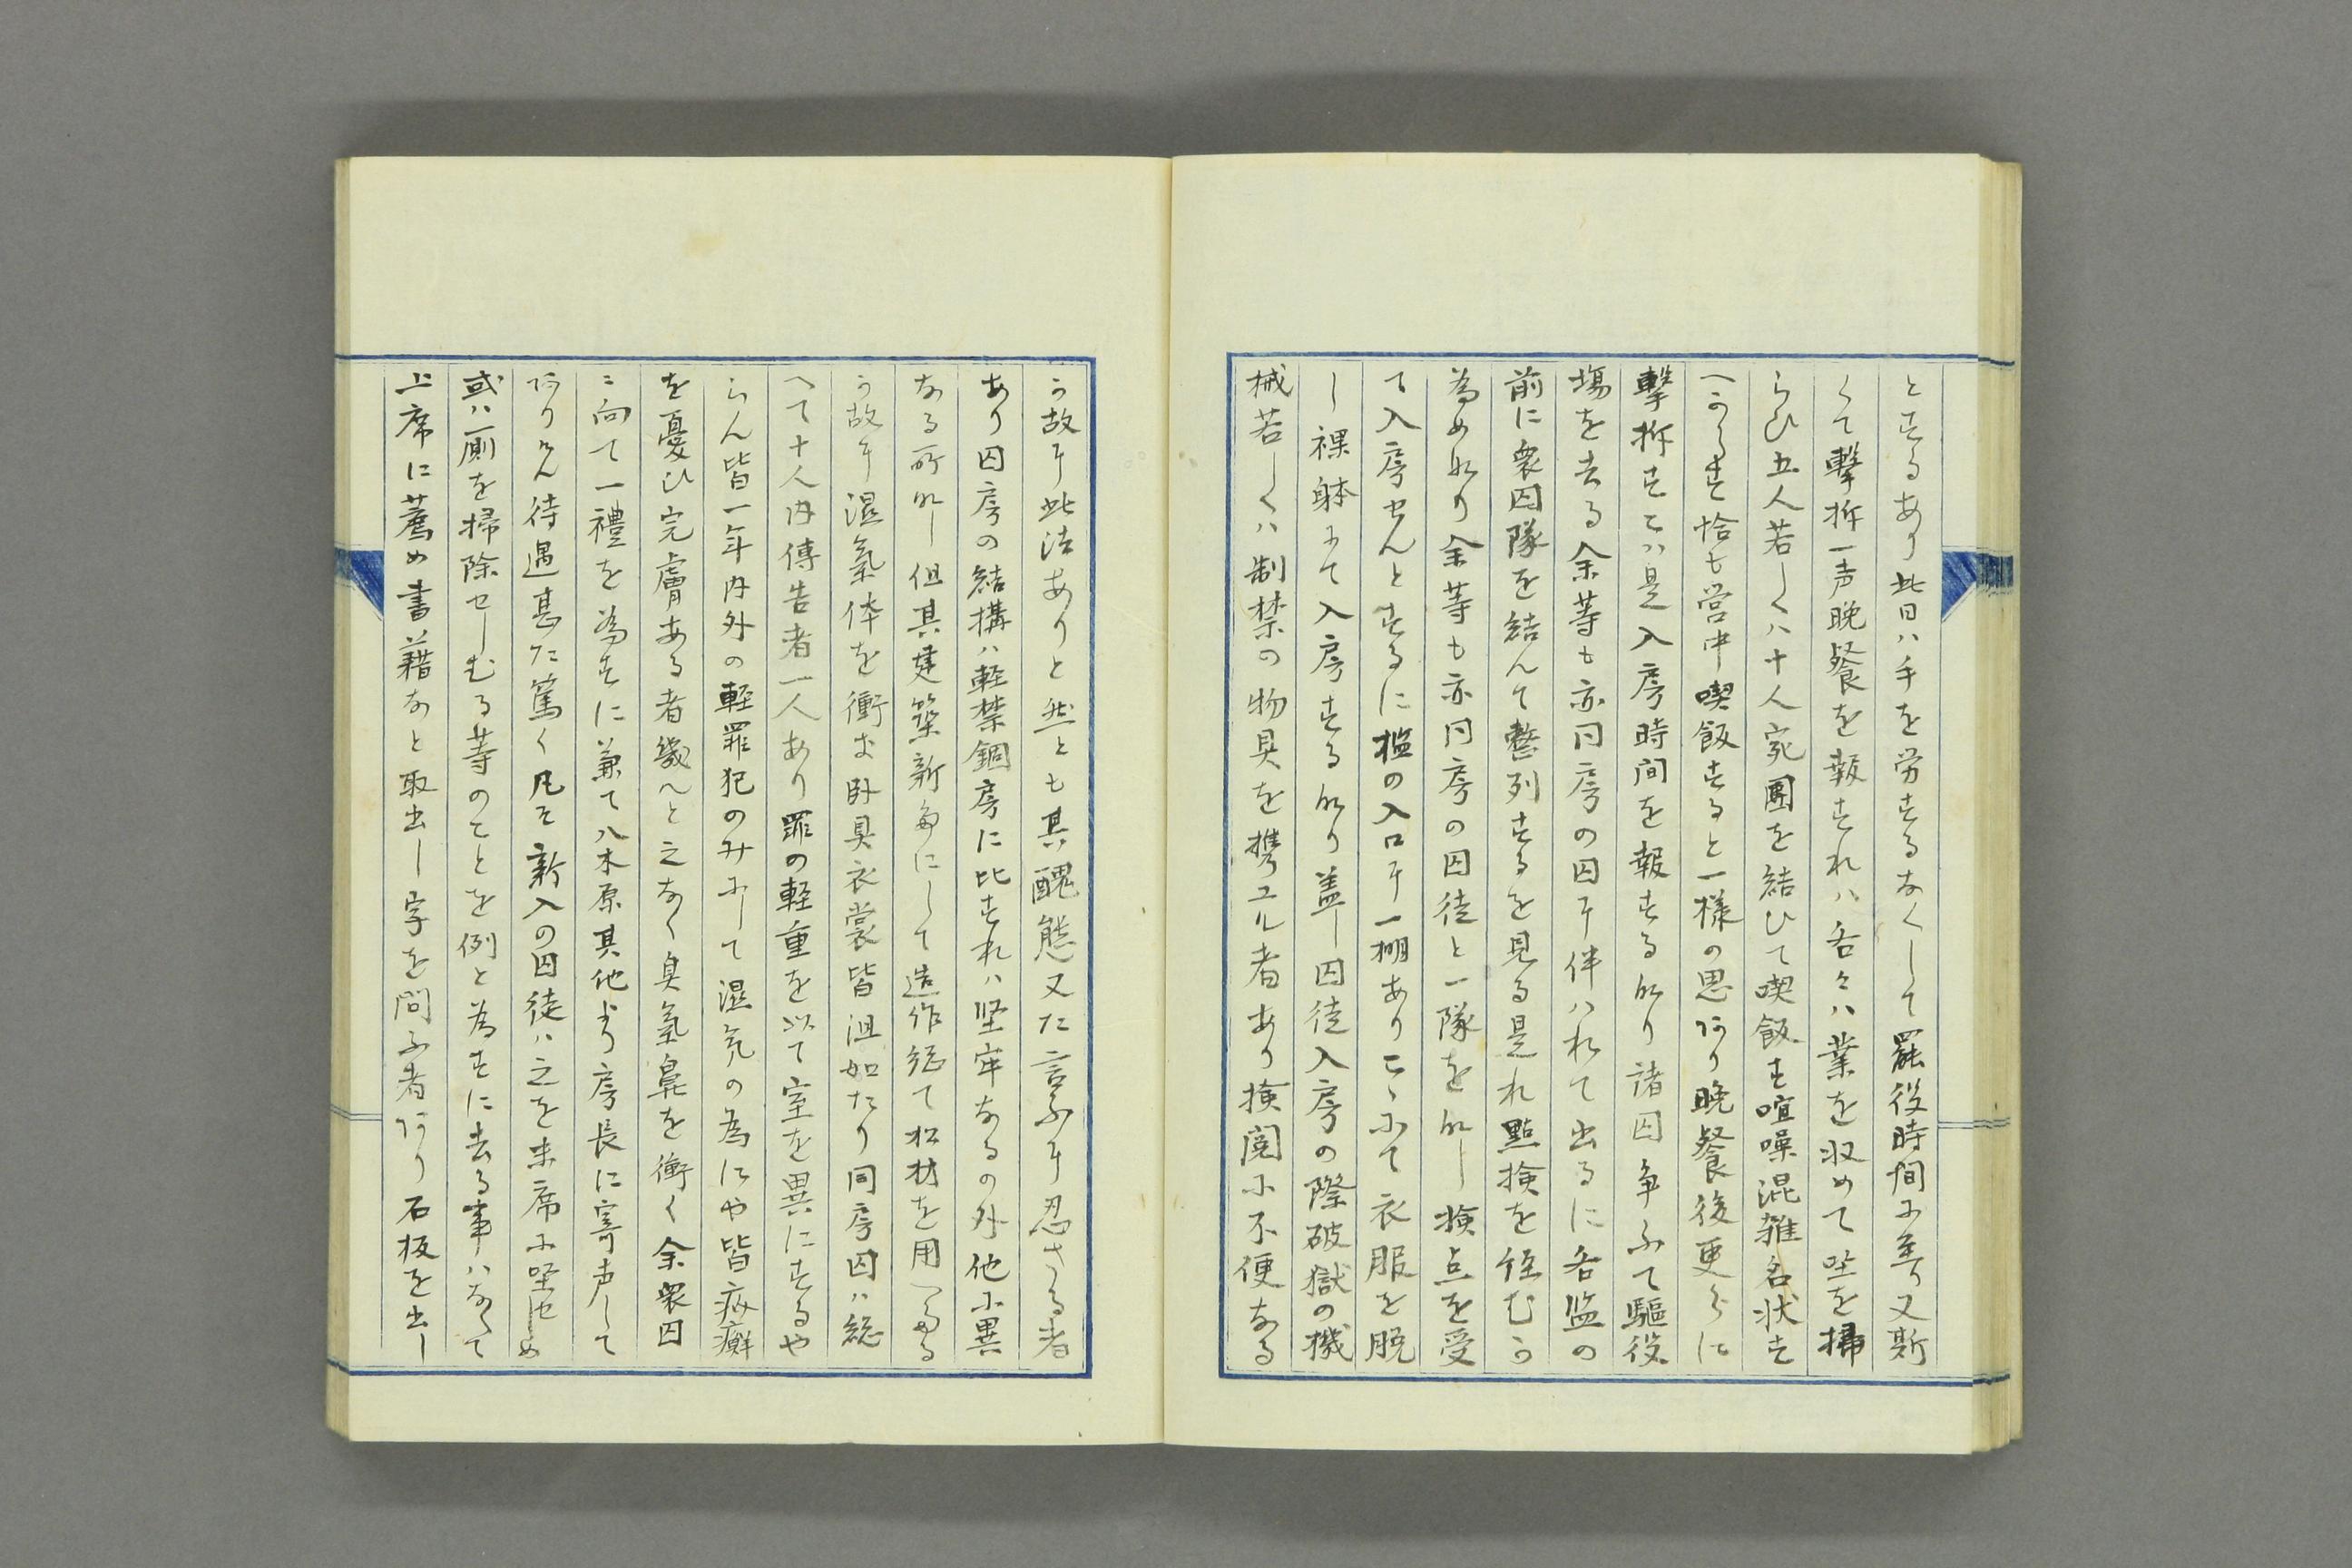 とするあり此日ハ手を労するなくして罷役時間に至り又斯
くて撃柝一声晩餐を報すれハ各々ハ業を収めて坐を掃
らひ五人若しくハ十人宛団を結ひて喫飯す喧噪混雑名状す
へからす恰も営中喫飯すると一様の思あり晩餐後更らに
撃柝すこハ是入房時間を報する也り諸囚争ふて駆役
場を去る余等も亦同房の囚に伴ハれて出るに各監の
前に衆囚隊を結んて整列するを見る是れ點検を経むか
為めなり余等も亦同房の囚徒と一隊を為し検点を受
て入房せんとするに檻の入口に一棚ありこゝにて衣服を脱
し裸躰にて入房するなり蓋し囚徒入房の際破獄の機
械若しくハ制禁の物具を携ユル者あり検閲に不便なる
か故に此法ありと然とも其醜態又た言ふに忍さる者
あり囚房の結構ハ軽禁錮房に比すれハ堅牢なるの外他に異
なる所なし但其建築新たにして造作総て松材を用へたる
か故に湿氣体を衝き臥具衣裳皆沮如たり同房囚ハ総
へて十人内傳告者一人あり罪の軽重を以て室を異にするや
らん皆一年内外の軽罪犯のみにして湿気の為にや皆疥癬
を憂ひ完膚ある者幾んと之なく臭氣鼻を衝く余衆囚
に向て一禮を為すに兼て八木原其他より房長に寄声して
ありけん待遇甚た篤く凡そ新入の囚徒ハ之を末席に坐せしめ
或ハ厠を掃除せしむる等のことを例と為すに去る事ハなくて
上席に薦め書籍なと取出し字を問ふ者あり石板を出し